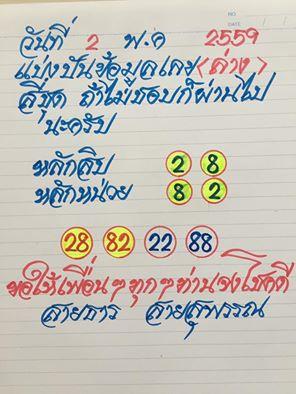 NO
วันที่ 2 พ.ค 2559
แบ่งปันข้อมูลเลข <ล่าง>
สี่ชุด ถ้าไม่ชอบก็ผ่านไป
นะครับ
หลักสิบ 2 8
หลักหน่วย 8 2
28 82 22 88
ขอให้เพื่อนๆทุกๆท่านจงโชคดี
สายธาร สายสุพรรณ